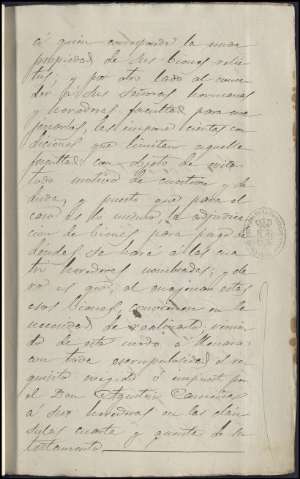 á quien corresponde la nuda
propiedad de sus bienes relic-
tos; y por otro lado al conce-
der á sus Señoras hermanas
y herederas facultad para ena-
jenarlos, les impone ciertas con-
diciones que limitan aquella
facultad con objeto de evitar
todo motivo de cuestion y de
duda, y puesto que para el
caso es lo mismo, la adjudica-
cion de bienes para pago de
deudas se hará á las cua-
tro herederas nombradas; y de-
ro es que, al enajenar estas
esos bienes, convienen en la
necesidad de realizarlo,
de este modo á llenar
con toda escrupulosidad el re-
quisito exigido é impuesto por
el Don Agustin
á sus herederas en las clau-
sulas cuarta y quinta de su
testamento